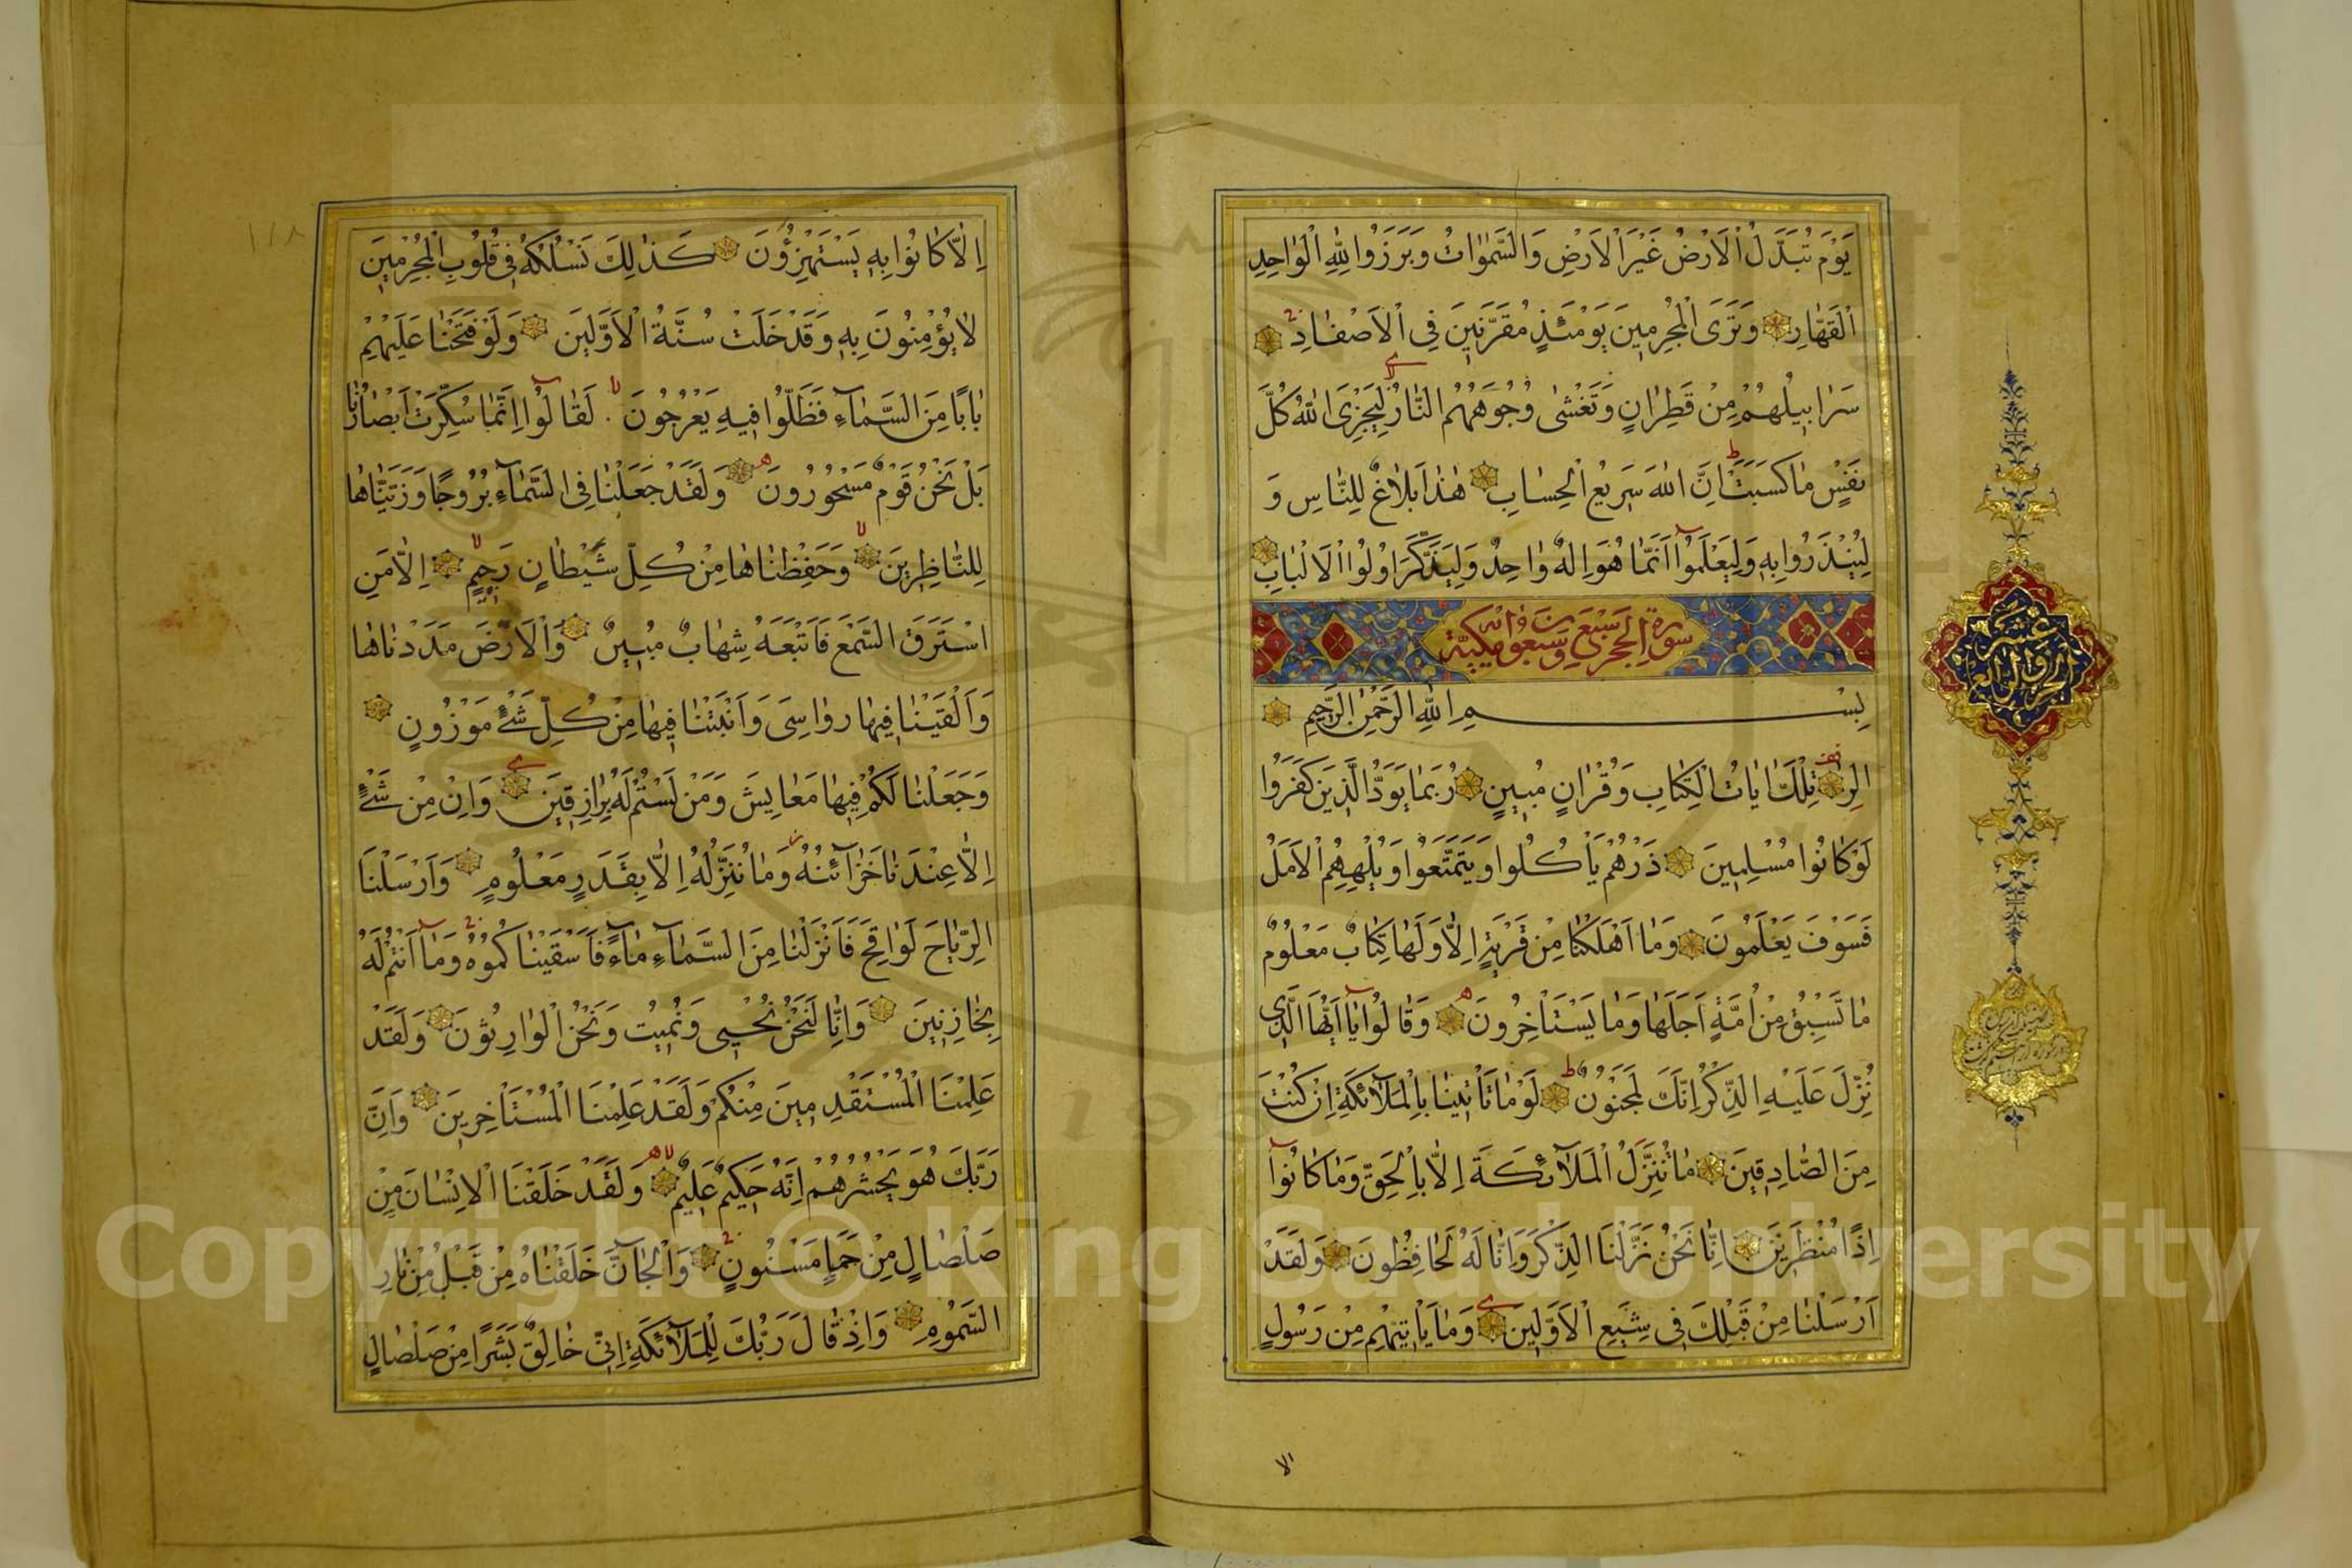 يَوْمَ تُبَدَّلُ الْاَرْضُ غَيْرَ الْاَرْضِ وَالسَّمٰوَاتُ وَبَرَزُوا لِلّٰهِ الْوَاحِدِ
الْقَهَّارِ وَتَرَى الْمُجْرِمِينَ يَوْمَئِذٍ مُقَرَّنِينَ فِي الْاَصْفَادِ
سَرَابِيلُهُمْ مِنْ قَطِرَانٍ وَتَغْشٰى وُجُوهَهُمُ النَّارُ لِيَجْزِيَ اللّٰهُ كُلَّ
نَفْسٍ مَا كَسَبَتْ اِنَّ اللّٰهَ سَرِيعُ الْحِسَابِ هٰذَا بَلَاغٌ لِلنَّاسِ وَ
لِيُنْذَرُوا بِهِ وَلِيَعْلَمُوا اَنَّمَا هُوَ اِلٰهٌ وَاحِدٌ وَلِيَذَّكَّرَ اُولُوا الْاَلْبَابِ
سورة الحجر سبع وتسعون اية مكية
بِسْمِ اللّٰهِ الرَّحْمٰنِ الرَّحِيمِ
الٓرٰ تِلْكَ اٰيَاتُ الْكِتَابِ وَقُرْاٰنٍ مُبِينٍ رُبَمَا يَوَدُّ الَّذِينَ كَفَرُوا
لَوْ كَانُوا مُسْلِمِينَ ذَرْهُمْ يَاْكُلُوا وَيَتَمَتَّعُوا وَيُلْهِهِمُ الْاَمَلُ
فَسَوْفَ يَعْلَمُونَ وَمَا اَهْلَكْنَا مِنْ قَرْيَةٍ اِلَّا وَلَهَا كِتَابٌ مَعْلُومٌ
مَا تَسْبِقُ مِنْ اُمَّةٍ اَجَلَهَا وَمَا يَسْتَاْخِرُونَ وَقَالُوا يَا اَيُّهَا الَّذِي
نُزِّلَ عَلَيْهِ الذِّكْرُ اِنَّكَ لَمَجْنُونٌ لَوْ مَا تَاْتِينَا بِالْمَلَآئِكَةِ اِنْ كُنْتَ
مِنَ الصَّادِقِينَ مَا نُنَزِّلُ الْمَلَآئِكَةَ اِلَّا بِالْحَقِّ وَمَا كَانُوا
اِذًا مُنْظَرِينَ اِنَّا نَحْنُ نَزَّلْنَا الذِّكْرَ وَاِنَّا لَهُ لَحَافِظُونَ وَلَقَدْ
اَرْسَلْنَا مِنْ قَبْلِكَ فِي شِيَعِ الْاَوَّلِينَ وَمَا يَاْتِيهِمْ مِنْ رَسُولٍ
الا
اِلَّا كَانُوا بِهِ يَسْتَهْزِؤُنَ كَذٰلِكَ نَسْلُكُهُ فِي قُلُوبِ الْمُجْرِمِينَ
لَا يُؤْمِنُونَ بِهِ وَقَدْ خَلَتْ سُنَّةُ الْاَوَّلِينَ وَلَوْ فَتَحْنَا عَلَيْهِمْ
بَابًا مِنَ السَّمَآءِ فَظَلُّوا فِيهِ يَعْرُجُونَ لَقَالُوا اِنَّمَا سُكِّرَتْ اَبْصَارُنَا
بَلْ نَحْنُ قَوْمٌ مَسْحُورُونَ وَلَقَدْ جَعَلْنَا فِي السَّمَآءِ بُرُوجًا وَزَيَّنَّاهَا
لِلنَّاظِرِينَ وَحَفِظْنَاهَا مِنْ كُلِّ شَيْطَانٍ رَجِيمٍ اِلَّا مَنِ
اسْتَرَقَ السَّمْعَ فَاَتْبَعَهُ شِهَابٌ مُبِينٌ وَالْاَرْضَ مَدَدْنَاهَا
وَاَلْقَيْنَا فِيهَا رَوَاسِيَ وَاَنْبَتْنَا فِيهَا مِنْ كُلِّ شَيْءٍ مَوْزُونٍ
وَجَعَلْنَا لَكُمْ فِيهَا مَعَايِشَ وَمَنْ لَسْتُمْ لَهُ بِرَازِقِينَ وَاِنْ مِنْ شَيْءٍ
اِلَّا عِنْدَنَا خَزَآئِنُهُ وَمَا نُنَزِّلُهُ اِلَّا بِقَدَرٍ مَعْلُومٍ وَاَرْسَلْنَا
الرِّيَاحَ لَوَاقِحَ فَاَنْزَلْنَا مِنَ السَّمَآءِ مَآءً فَاَسْقَيْنَاكُمُوهُ وَمَا اَنْتُمْ لَهُ
بِخَازِنِينَ وَاِنَّا لَنَحْنُ نُحْيِي وَنُمِيتُ وَنَحْنُ الْوَارِثُونَ وَلَقَدْ
عَلِمْنَا الْمُسْتَقْدِمِينَ مِنْكُمْ وَلَقَدْ عَلِمْنَا الْمُسْتَاْخِرِينَ وَاِنَّ
رَبَّكَ هُوَ يَحْشُرُهُمْ اِنَّهُ حَكِيمٌ عَلِيمٌ وَلَقَدْ خَلَقْنَا الْاِنْسَانَ مِنْ
صَلْصَالٍ مِنْ حَمَاٍ مَسْنُونٍ وَالْجَآنَّ خَلَقْنَاهُ مِنْ قَبْلُ مِنْ نَارِ
السَّمُومِ وَاِذْ قَالَ رَبُّكَ لِلْمَلَآئِكَةِ اِنِّي خَالِقٌ بَشَرًا مِنْ صَلْصَالٍ
١١٨
Copyright © King Saud University